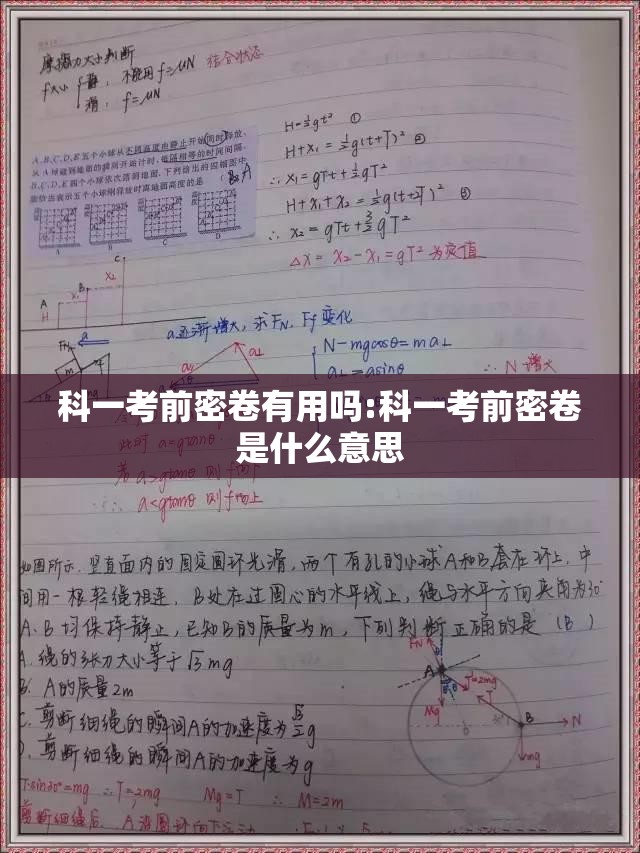 摩擦力大小判断
f大小 静：不能用f=μN 结合状态
滑：f=μN
A、B、C、D、E五个小球从不同高度由静止开始同时释放，
从A球碰到地面的瞬间开始计时，每隔相等的时间间隔，
B、C、D、E四个小球依次落到地面，下列给出的四幅图中
能恰当表示五个小球刚释放时离地面高度的是
A B C D
H=½gt² ①
H+x₁=½g(t+T)² ②
∴x₁=gTt+½gT²
H+x₁+x₂=½g(t+2T)² ③
∴x₂=gTt+3/2gT²
Δx=x₂-x₁=gT²为定值
C
x₂
B
A x₁
H
a逐渐增大，求FN，Ff变化
FN a
m
N-mgcosθ=ma⊥
a⊥=asinθ
∴N增大
科一考前密卷有用吗:科一考前密卷
是什么意思
此时a=gtanθ
若a>gtanθ则f向下
a<gtanθ则f向上
如图所示，竖直面内的固定圆环光滑，两个有孔的小球A和B套在环上，中
间用一根轻绳相连，B处在过圆心的水平线上，绳与水平方向夹角为30°
A、B均保持静止，已知B的质量为m，下列判断正确的是（B）
A. 绳的张力大小等于√3mg
B. A的质量2m
C. 剪断细绳的瞬间A的加速度为√3/2g
D. 剪断细绳的瞬间A的加速度为g
FN
A
T=2mg
T
Mg
B N
mg
T·sin30°=mg ∴T=2mg Mg=T ∴M=2m
剪断细绳后，A沿圆环向下运动